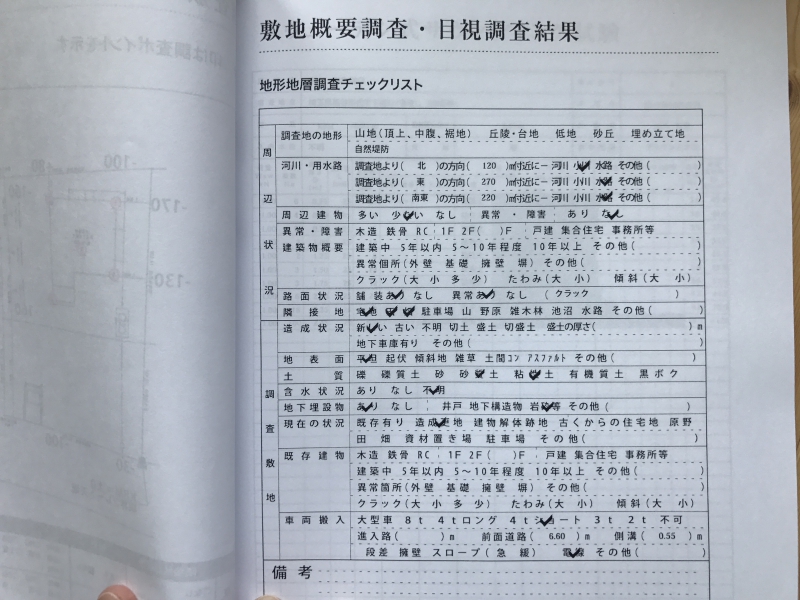 敷地概要調査・目視調査結果
地形地層調査チェックリスト
周辺状況
調査地の地形 山地(頂上、中腹、裾地) 丘陵・台地 低地 砂丘 埋め立て地
自然堤防
河川・用水路 調査地より( 北 )の方向( 120 )m付近に－河川 小川 水路 その他( )
調査地より( 東 )の方向( 270 )m付近に－河川 小川 水路 その他( )
調査地より( 南東 )の方向( 220 )m付近に－河川 小川 水路 その他( )
周辺建物 多い 少ない なし 異常・障害 あり なし
異常・障害 木造 鉄骨 RC 1F 2F( )F 戸建 集合住宅 事務所等
建築物概要 建築中 5年以内 5～10年程度 10年以上 その他( )
異常個所(外壁 基礎 擁壁 塀) その他( )
クラック(大 小 多 少) たわみ(大 小) 傾斜(大 小)
路面状況 舗装あり なし 異常あり なし ( クラック )
隣接地 宅地 駐車場 山 野原 雑木林 池沼 水路 その他( )
調査敷地
造成状況 新しい 古い 不明 切土 盛土 切盛土 盛土の厚さ( )m
地下車庫有り その他( )
地表面 平坦 起伏 傾斜地 雑草 土間コン アスファルト その他( )
土質 礫 礫質土 砂 砂質土 粘性土 有機質土 黒ボク
含水状況 あり なし 不明
地下埋設物 あり なし 井戸 地下構造物 等 その他( )
現在の状況 既存有り 造成更地 建物解体跡地 古くからの住宅地 原野
田 畑 資材置き場 駐車場 その他( )
既存建物 木造 鉄骨 RC 1F 2F( )F 戸建 集合住宅 事務所等
建築中 5年以内 5～10年程度 10年以上 その他( )
異常箇所(外壁 基礎 擁壁 塀) その他( )
クラック(大 小 多 少) たわみ(大 小) 傾斜(大 小)
車両搬入 大型車 8t 4tロング 4tショート 3t 2t 不可
進入路( )m 前面道路( 6.60 )m 側溝( 0.55 )m
段差 擁壁 スロープ(急 緩) 電線 その他( )
備考